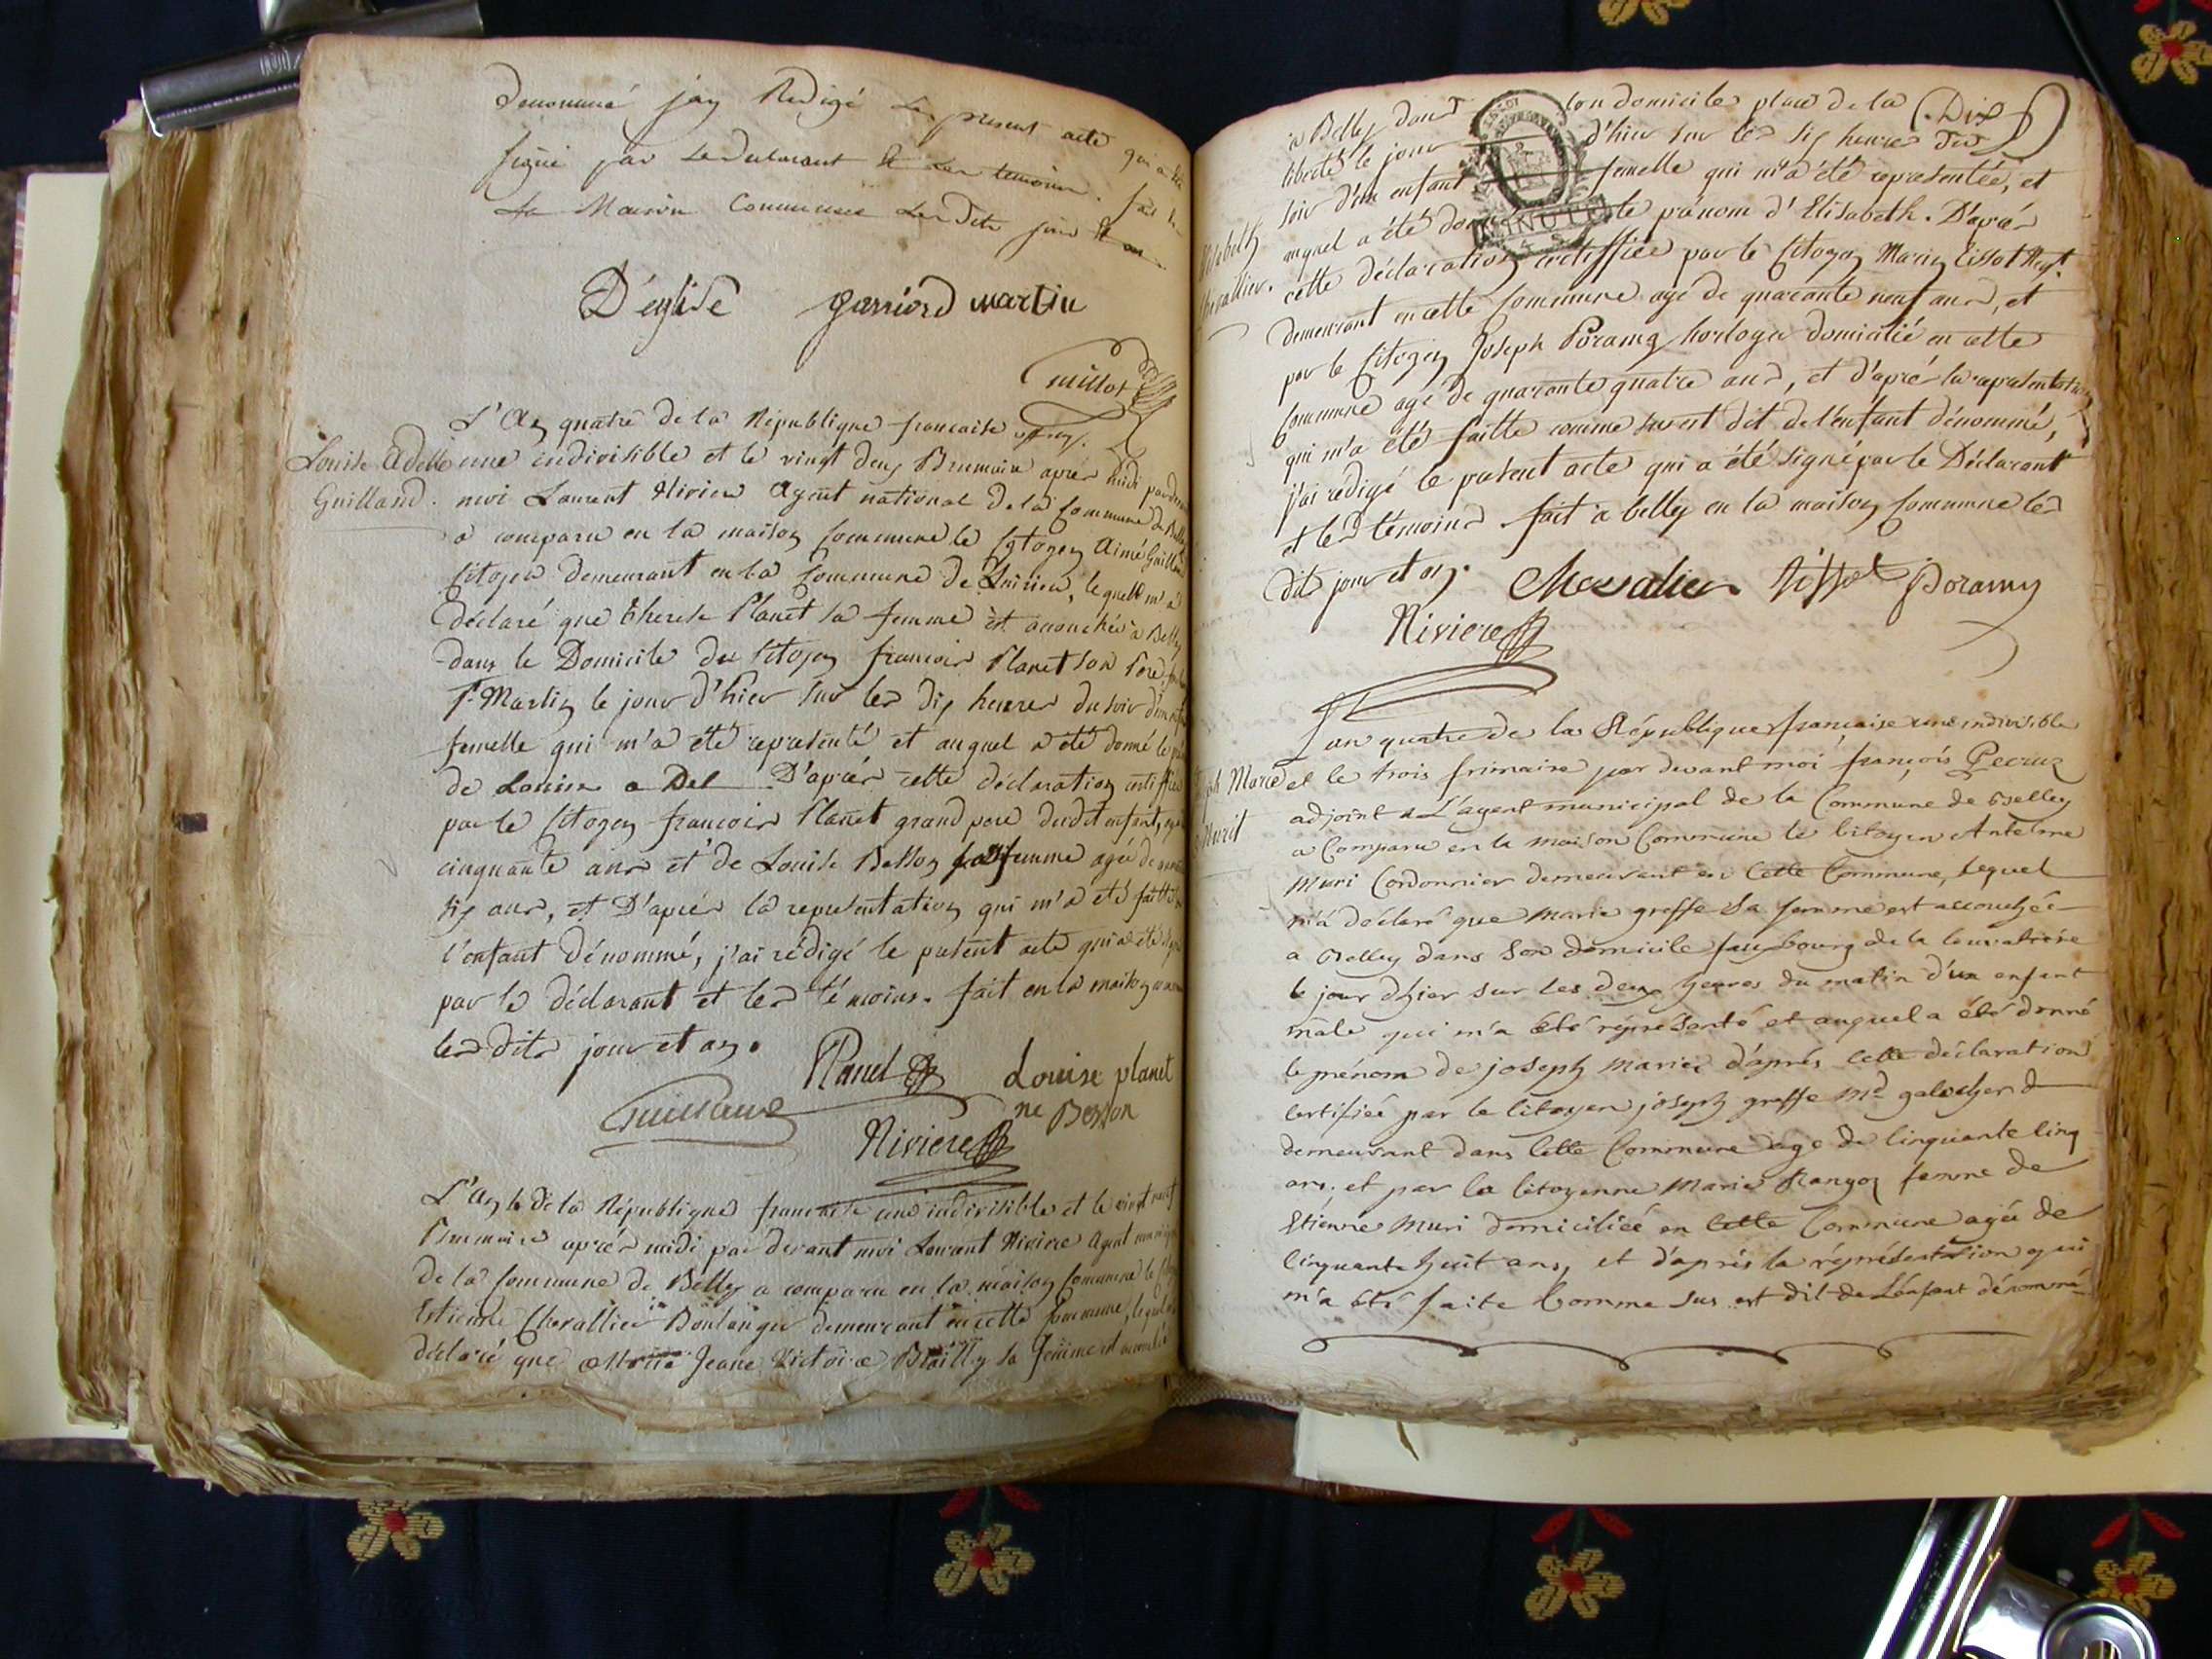 denommé jay Redigé le present acte qui a été
signé par le declarant et les temoins. fait en
la Maison Commune les dits jour et an.
D'eglise garriord martin
Guillot
L'An quatre de la République francaise
Louise Adelle une indivisible et le vingt deux Brumaire après midi par devant
Guilland. moi Laurent Rivier Agent national de la Commune de Belley
a comparu en la maison Commune le Citoyen Aimé Guilland
Citoyen demeurant en la Commune de Lhirieu, lequell m'a
déclaré que Therese Planet sa femme est accouchée à Belley
dans le Domicile du Citoyen francois Planet son Pere
St Martin le jour d'hier sur les dix heures du soir d'un enfant
femelle qui m'a été representé et auquel a été donné le
de Louise a Del D'après cette déclaration certiffiée
par le Citoyen francois Planet grand pere dudit enfant, agé
cinquante ans et de Louise Besson sa femme agée de
six ans, et D'après la representation qui m'a été faitte
l'enfant dénommé, j'ai rédigé le present acte qui a été signé
par le déclarant et les témoins. fait en la maison
les dits jour et an.
Planet Louise planet
Guilland né Besson
Riviere
L'An 4 de la République francaise une indivisible et le vingt neuf
Brumaire après midi par devant moi Laurent Riviere Agent municipal
de la Commune de Belley a comparu en la maison Commune le
Estienne Chevallier Boulanger demeurant en cette Commune, lequel
déclaré que Jeane Victoire Brailly sa femme est accouchée
à Belley dans son domicile place de la (Dix
liberté le jour d'hier sur les six heures du
soir d'un enfant femelle qui m'a été representée, et
MINUTE
Elisabeth auquel a été donné le prénom d'Elisabeth. D'après
Chevallier. cette déclaration certiffiée par le Citoyen Marin Tissot
demeurant en cette Commune agé de quarante neuf ans, et
par le Citoyen Joseph Poramy horloger domicilié en cette
Commune agé de quarante quatre ans, et d'après la representation
qui m'a été faitte comme sus est dit de l'enfant dénommé,
j'ai rédigé le present acte qui a été signé par le Déclarant
et les témoins. fait à belley en la maison Commune les
dits jour et an. Chevalier Tissot Poramy
Riviere
L'an quatre de la République française une indivisible
Joseph Marie et le trois frimaire par devant moi françois Pecruz
Muri adjoint a L'agent municipal de la Commune de Belley
a Comparu en la maison Commune le Citoyen Antelme
Muri Cordonnier demeurant en Cette Commune, Lequel
m'a déclaré que Marie greffe Sa femme est accouchée
a Belley dans Son domicile fauxbourg de la
le jour dhier sur les deux heures du matin d'un enfant
male qui m'a été représenté et auquel a été donné
le prénom de joseph Marie, d'après Cette déclaration
Certifiée par le Citoyen joseph greffe Md galocher
demeurant dans Cette Commune agé de Cinquante Cinq
ans, et par la Citoyenne Marie Rangoz femme de
Etienne Muri domiciliée en Cette Commune agée de
Cinquante huit ans, et d'après la représentation qui
m'a été faite Comme sus est dit de L'enfant dénommé